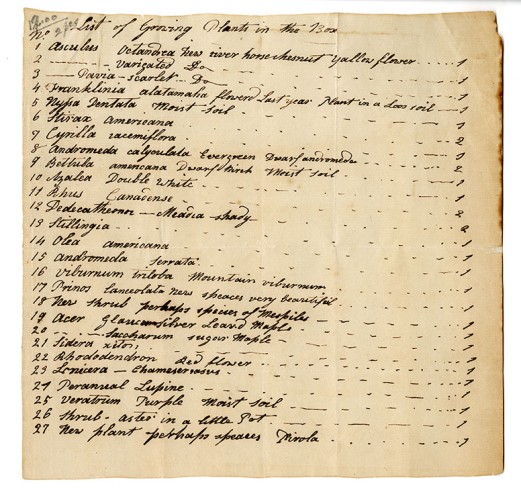 No List of Growing Plants in the Box
1 Aesculus Octandrea New river horse chesnut Yallow flower 1
2 —— Varigated Do 1
3 — Pavia — Scarlet Do 1
4 Franklinia alatamaha flowerd Last year Plant in a Loos soil 1
5 Nyssa Dentata Moist Soil 1
6 Stirax Americana 1
7 Cyrilla racemiflora 2
8 Andromeda calyculata Evergreen Dwarf andromeda 2
9 Bettula americana Dwarf Birch Moist Soil 1
10 Azalea Double White 1
11 Rhus Canadense 1
12 Dodecatheon — Meadia shady 2
13 Stillingia 2
14 Olea americana 1
15 Andromeda serrata 1
16 Viburnum triloba Mountain viburnum 1
17 Prinos Lanceolata New speaces very beautifil 1
18 New Shrub perhaps species of Mespiles 1
19 Acer glaucum Silver Leavd Maple 1
20 — saccharum sugar Maple 1
21 Sidera xilon 1
22 Rhododendron Red flower 1
23 Lonicera — Chamaeserasus 1
24 Peranual Lupine 1
25 Veratrum Purple Moist Soil 1
26 Shrub — aster in a little Pot 1
27 New plant perhaps speaces Pirola 1